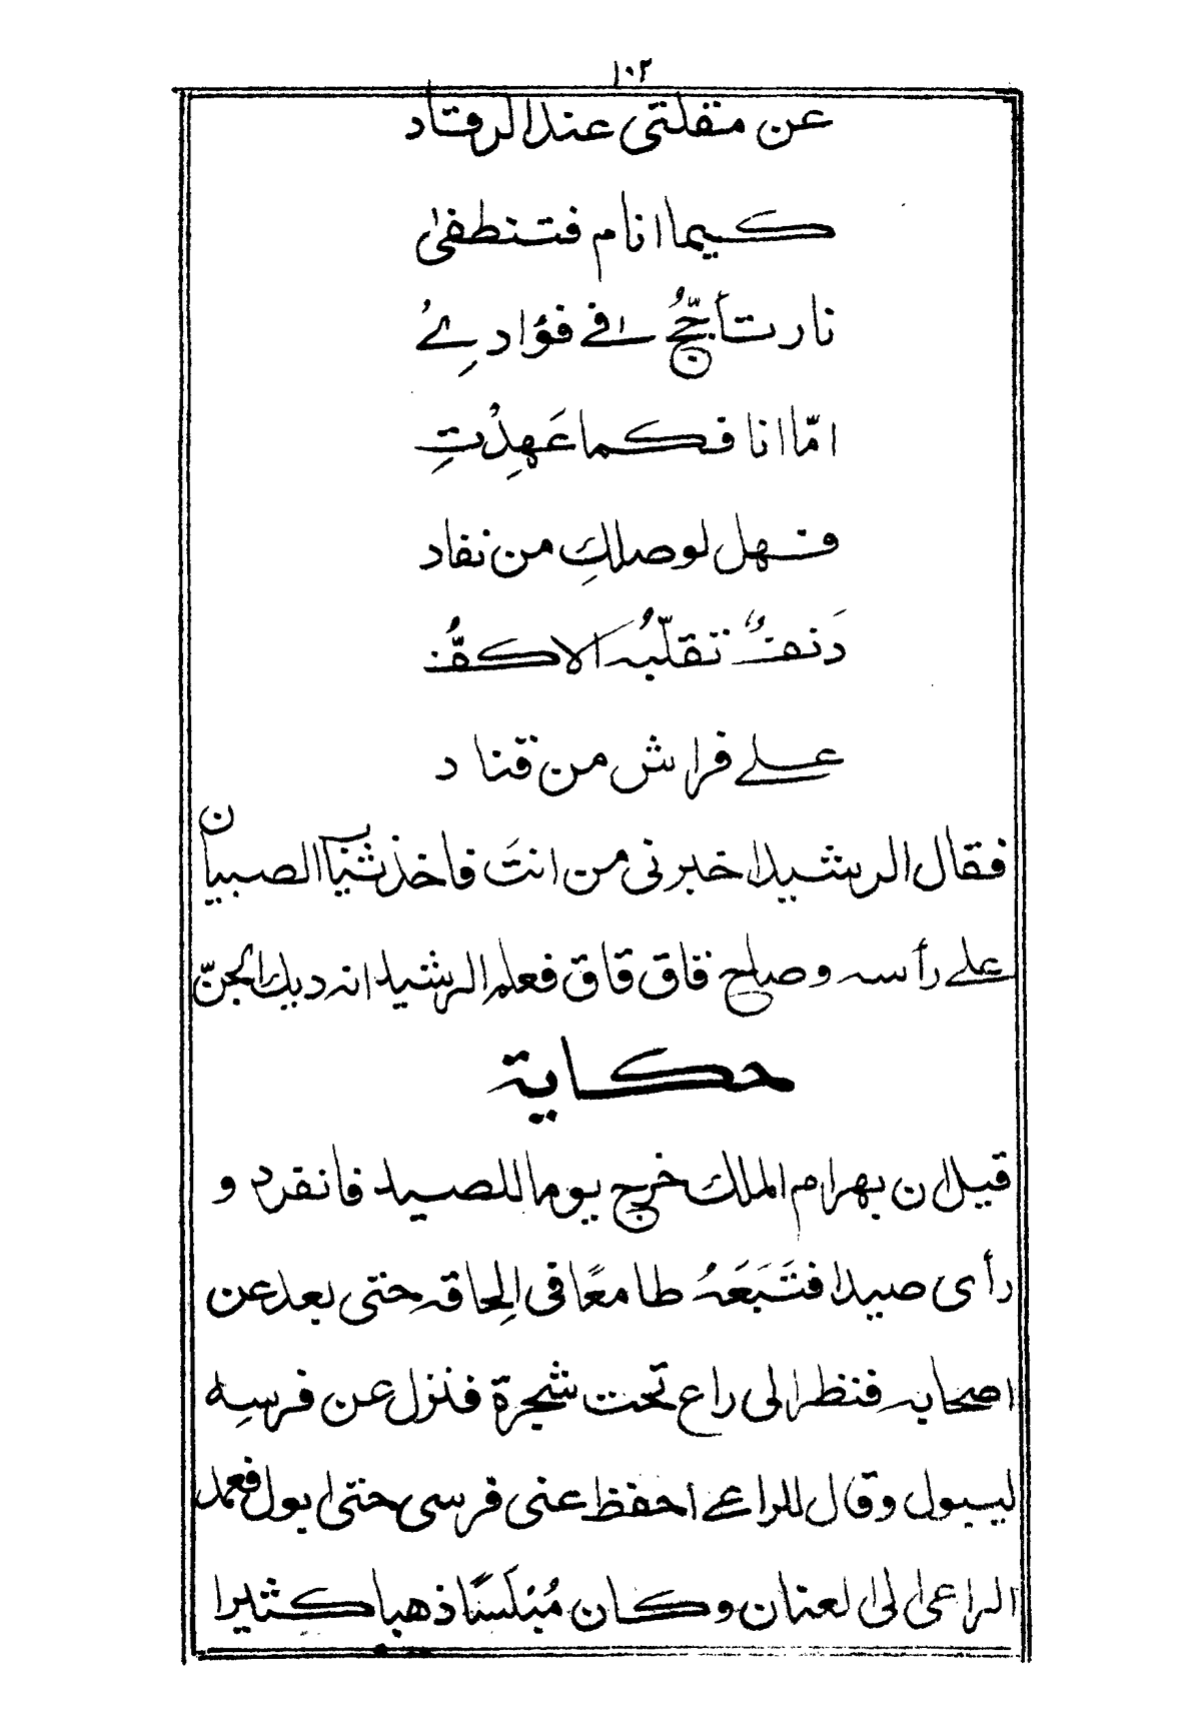 ١٠٢
عن مقلتى عند الرقاد
كيما انام فتنطفى
نار تأجّجُ في فؤادِيْ
امّا انا فكما عَهِدْتِ
فهل لوصلكِ من نفاد
دَنفٌ تقلّبُه الاكفُّ
على فراش من قتاد
فقال الرشيد اخبرنى من انتَ فاخذ ثياب الصبيان
على رأسه وصاح قاق قاق فعلم الرشيد انه ديك الجنّ
حكاية
قيل ان بهرام الملك خرج يوما للصيد فانفرد و
رأى صيدا فتَبَعَهُ طامعًا فى لِحاقه حتى بعد عن
اصحابه فنظر الى راع تحت شجرة فنزل عن فرسه
ليبول وقال للراعى احفظ عنى فرسى حتى ابول فعمد
الراعى الى العنان وكان مُبْلَسًا ذهبا كثيرا